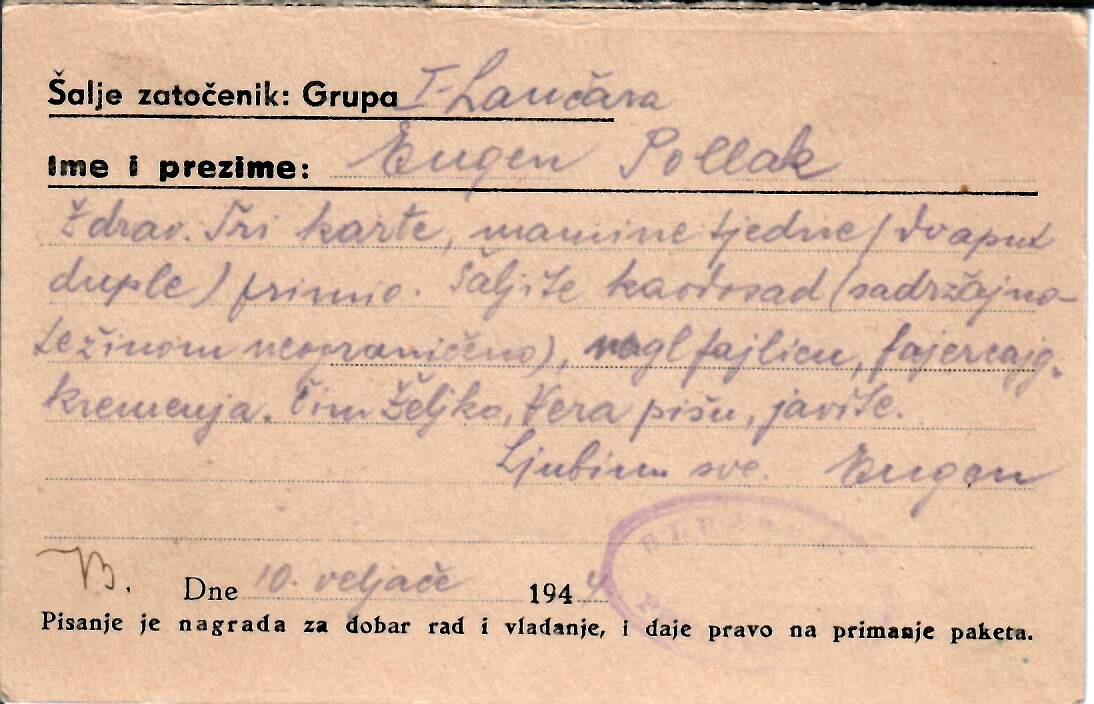 Šalje zatočenik: Grupa I-Lančara
Ime i prezime: Eugen Pollak
Zdrav. Tri karte, mamine tjedne (dvaput
duple) primio. Šaljite kaodosad (sadržajno-
težinom neograničeno), naglfajlicu, fajercajg,
kremenja. Čim Željko, Vera pišu, javite.
Ljubim sve. Eugen
Dne 10. veljače 1944
Pisanje je nagrada za dobar rad i vladanje, i daje pravo na primanje paketa.